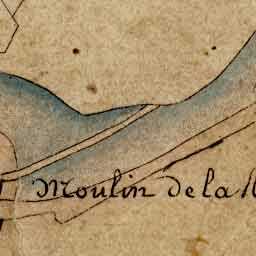 Moulin de la